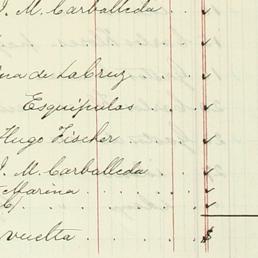 J. M. Carballeda . . ✓
na de LaCruz . . ✓
Esquipulas . . ✓
Hugo Fischer . . ✓
J. M. Carballeda . . ✓
Marina . . . ✓
✓
vuelta . . . . $